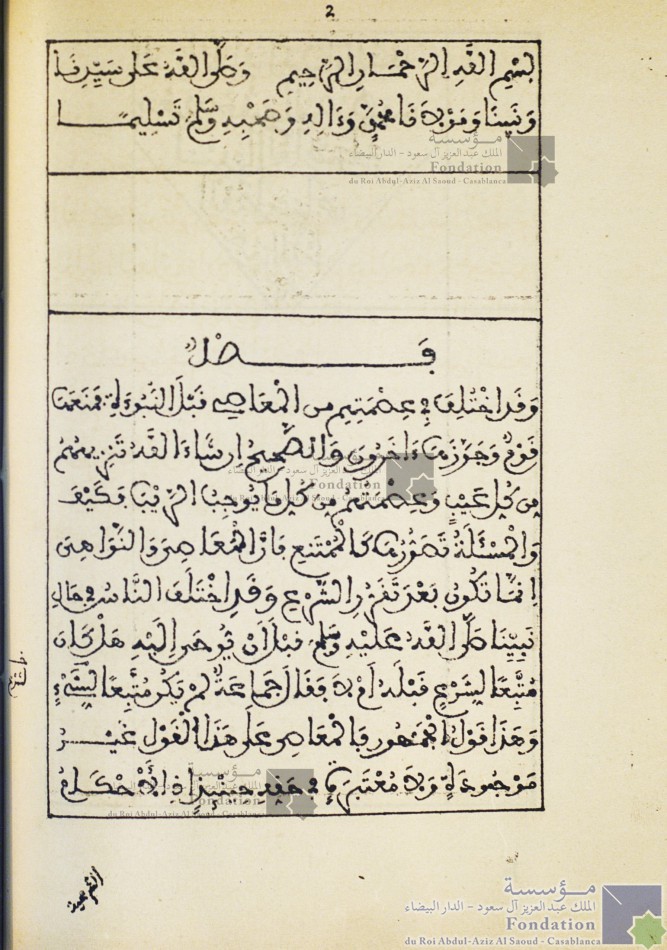 2
بِسْمِ اللَّهِ الرَّحْمَٰنِ الرَّحِيمِ وَصَلَّى اللَّهُ عَلَى سَيِّدِنَا
وَنَبِيِّنَا وَمَوْلَانَا مُحَمَّدٍ وَءَالِهِ وَصَحْبِهِ وَسَلَّمَ تَسْلِيمًا
مؤسسة
الملك عبد العزيز آل سعود - الدار البيضاء
Fondation
du Roi Abdul-Aziz Al Saoud - Casablanca
فَصْلٌ
وَقَدِ اخْتُلِفَ فِي عِصْمَتِهِم مِنَ الْمَعَاصِي قَبْلَ النُّبُوءَةِ فَمَنَعَهَا
قَوْمٌ وَجَوَّزَهَا ءَاخَرُونَ وَالصَّحِيحُ إِن شَاءَ اللَّهُ تَنْزِيهُهُمْ
مِن كُلِّ عَيْبٍ وَعِصْمَتُهُمْ مِن كُلِّ مَا يُوجِبُ الرَّيْبَ فَكَيْفَ
وَالْمَسْئَلَةُ تَصَوُّرُهَا كَالْمُمْتَنِعِ فَإِنَّ الْمَعَاصِيَ وَالنَّوَاهِيَ
إِنَّمَا تَكُونُ بَعْدَ تَقَرُّرِ الشَّرْعِ وَقَدِ اخْتَلَفَ النَّاسُ فِي حَالِ
نَبِيِّنَا صَلَّى اللَّهُ عَلَيْهِ وَسَلَّمَ قَبْلَ أَنْ يُوحَى إِلَيْهِ هَلْ كَانَ
مُتَّبِعًا لِشَرْعٍ قَبْلَهُ أَمْ لَا فَقَالَ جَمَاعَةٌ لَمْ يَكُن مُتَّبِعًا لِشَيْءٍ
وَهَذَا قَوْلُ الْجُمْهُورِ فَالْمَعَاصِي عَلَى هَذَا الْقَوْلِ غَيْرُ
مَوْجُودَةٍ وَلَا مُعْتَبَرَةٍ فِي حَقِّهِ حِينَئِذٍ إِذِ الْأَحْكَامُ
الشرعية
مؤسسة
الملك عبد العزيز آل سعود - الدار البيضاء
Fondation
du Roi Abdul-Aziz Al Saoud - Casablanca